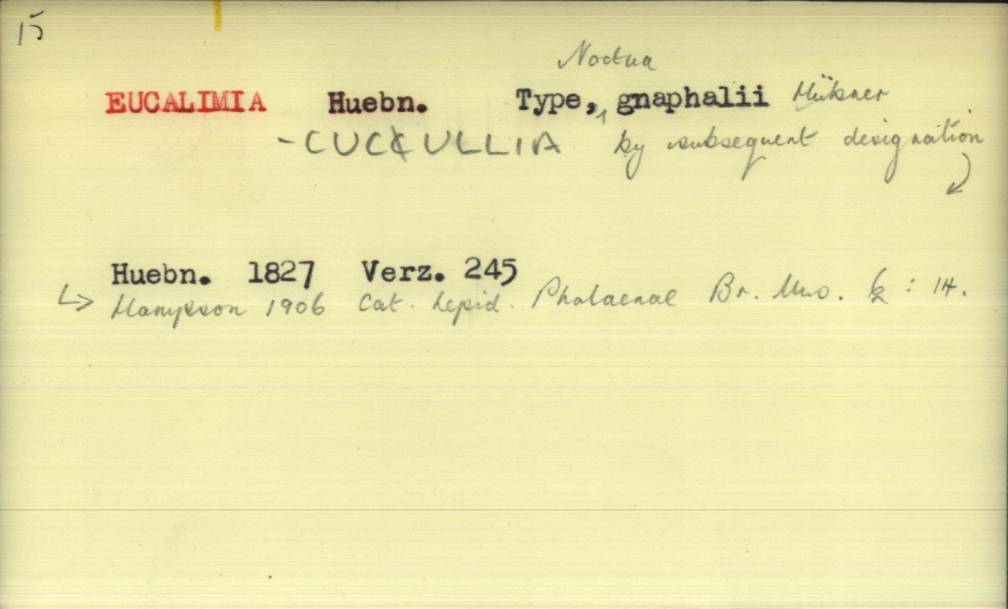 15
Noctua
EUCALIMIA Huebn. Type, gnaphalii Hübner
-CUCULLIA by subsequent designation
Huebn. 1827 Verz. 245
↳ Hampson 1906 Cat. Lepid. Phalaenae Br. Mus. 6 : 14.